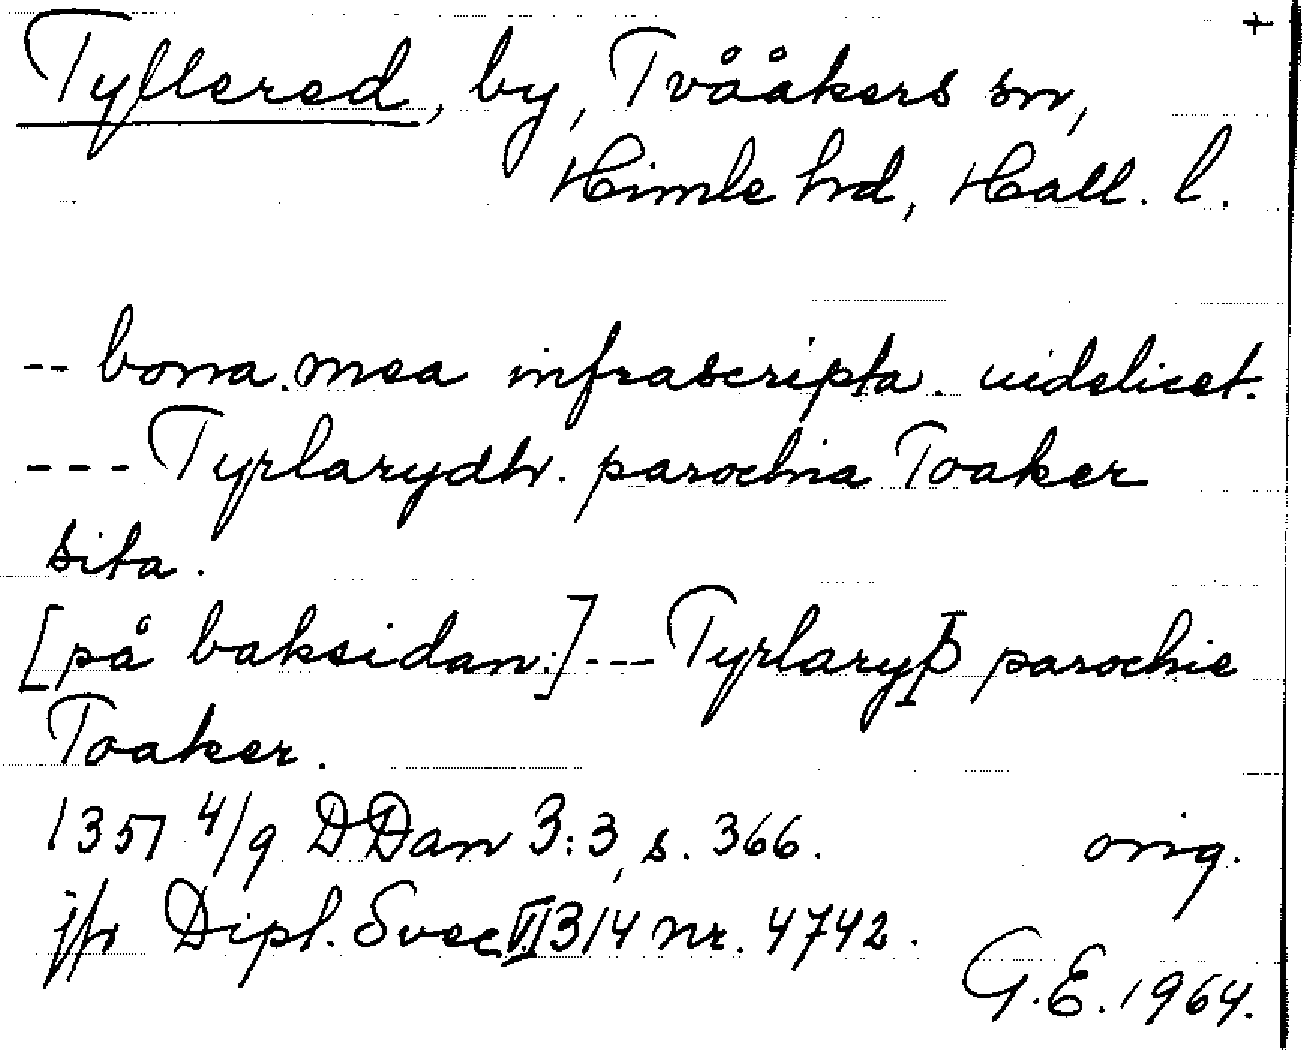 +
Tyllered, by, Tvååkers sn,
Himle hrd, Hall. l.
-- bona. mea infrascripta. uidelicet.
--- Tyrlarydh. parochia Toaker
sita.
[på baksidan:] --- TyrlaryÞ parochie
Toaker.
1357 4/9 DDan 3:3, s. 366. orig.
jfr Dipl. Svec VI 314 nr. 4742.
G.E. 1964.